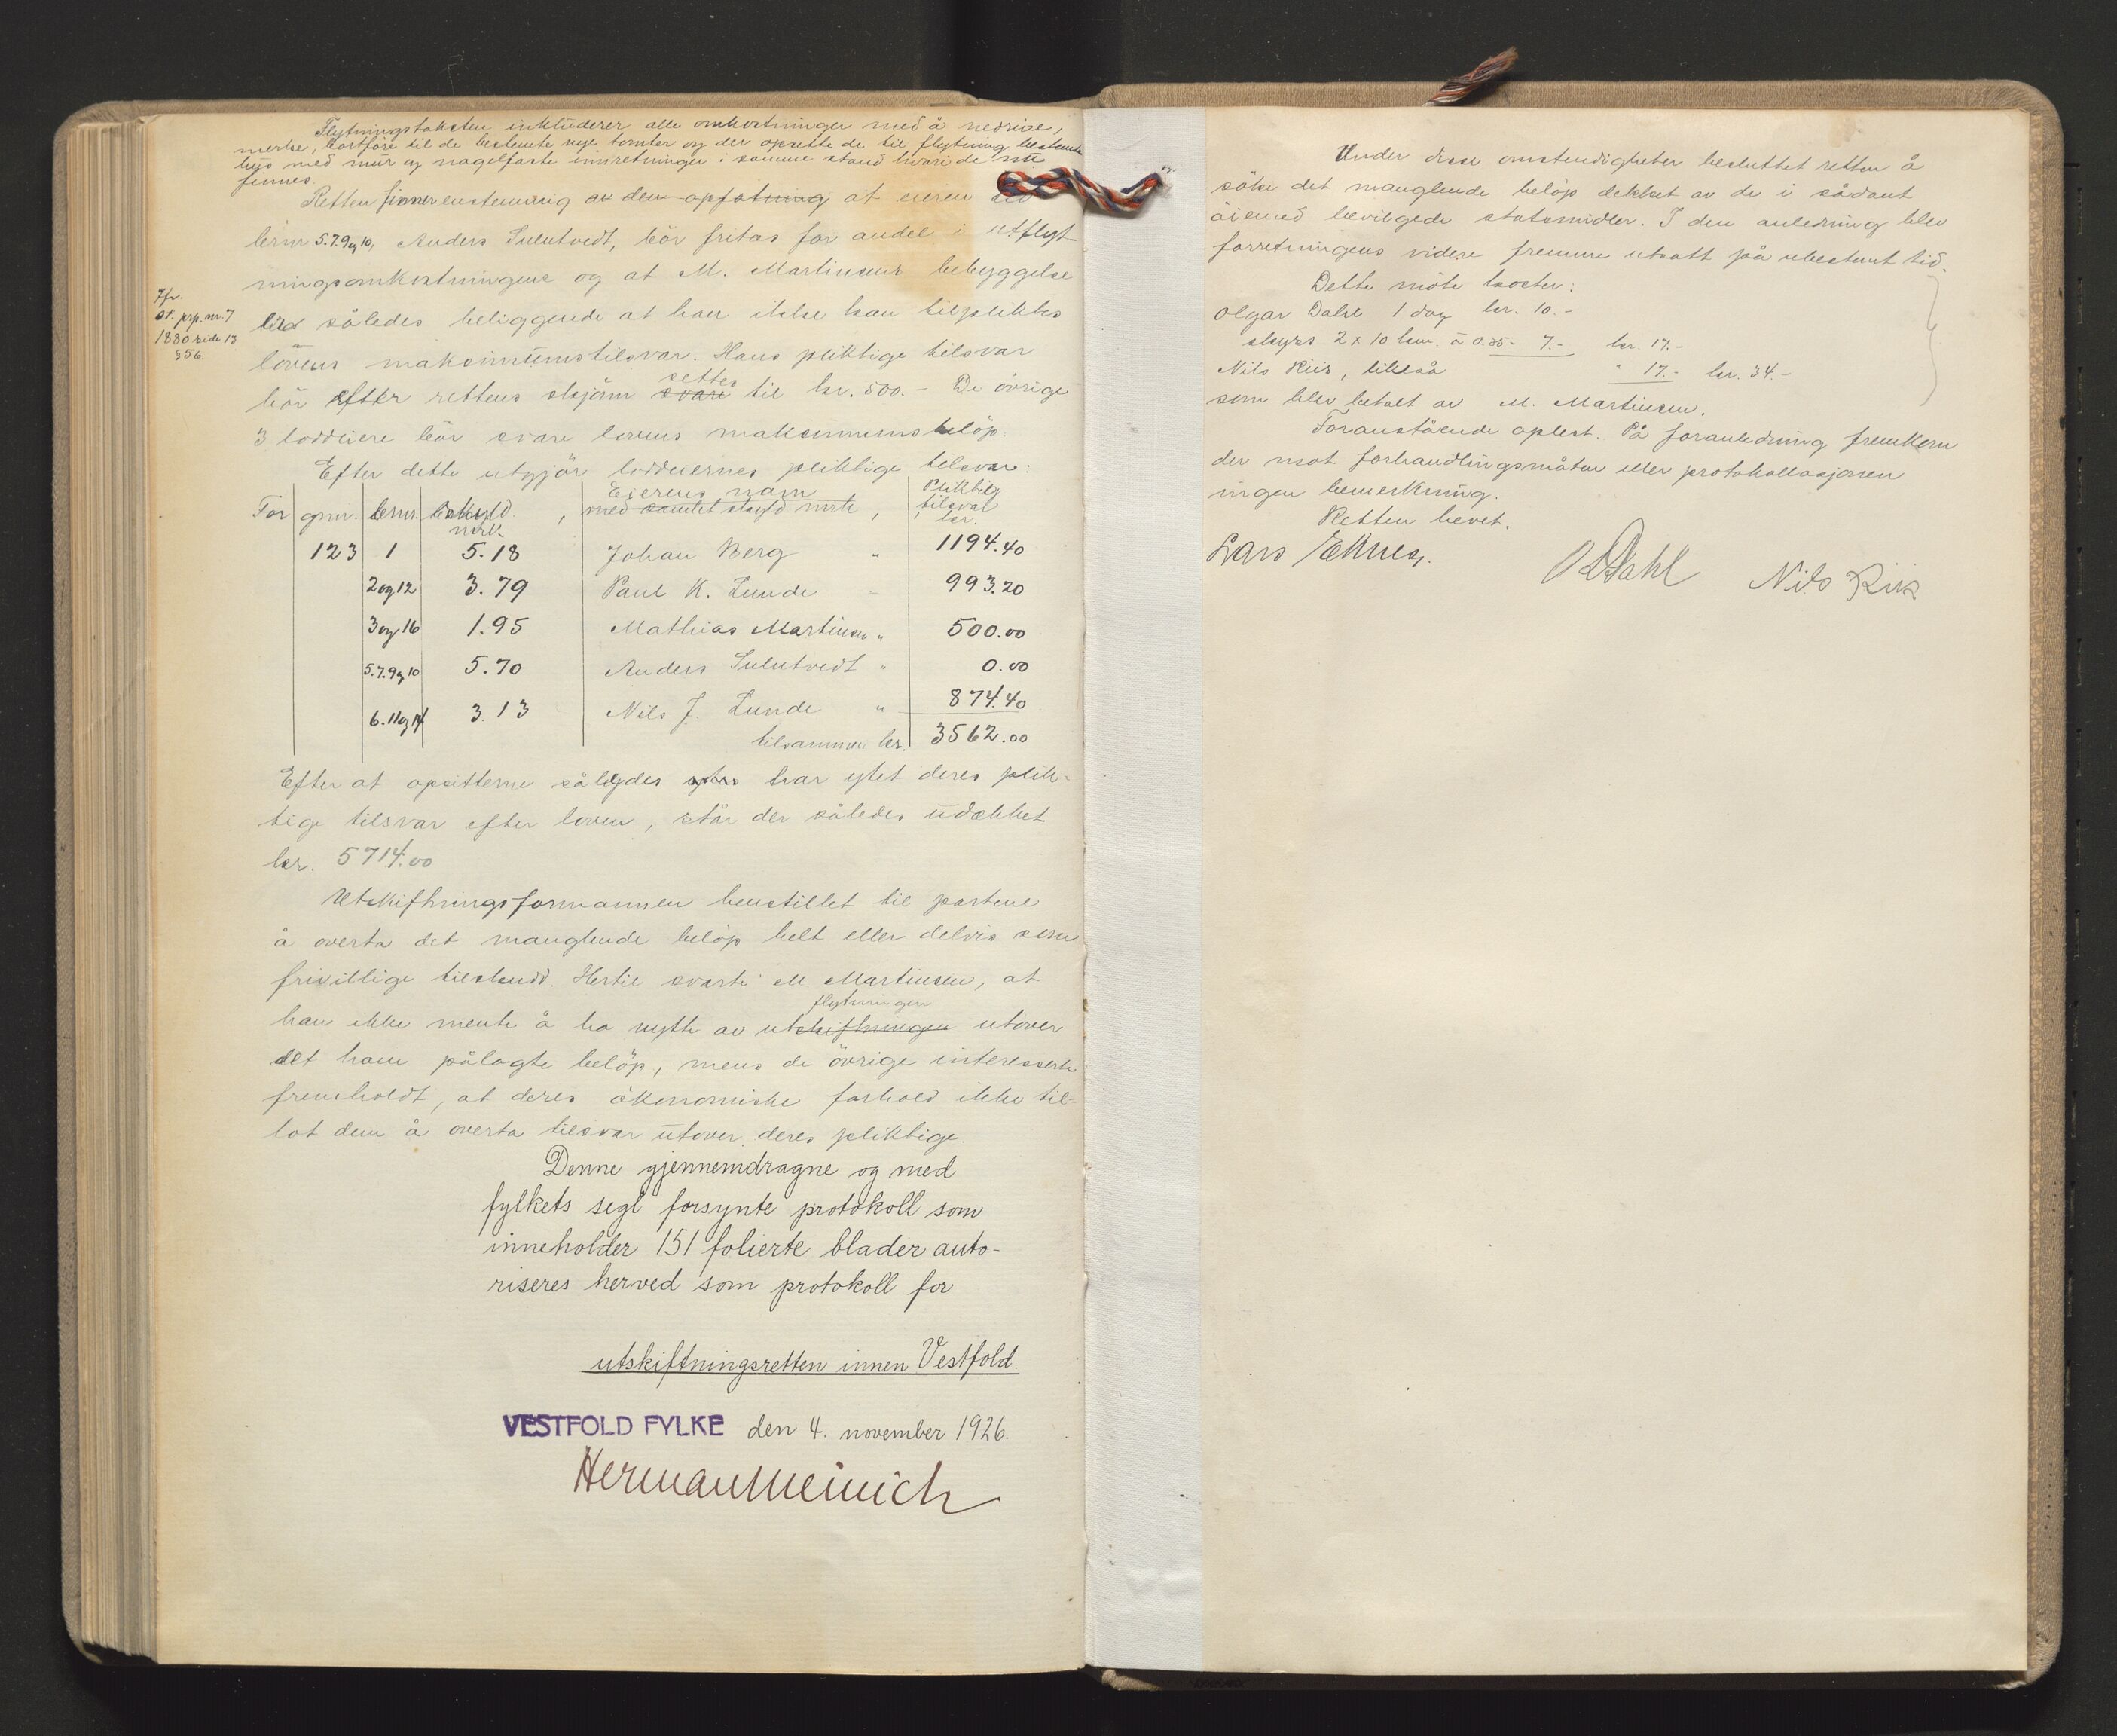 Flytningstaksten inkluderer alle omkostninger med å nedrive,
merke, bortføre til de bestemte nye tomter og der opsette de til flytning bestemte
hus med mur og nagelfaste innretninger i samme stand hvori de nu
finnes.
Retten finner enstemmig av den opfatning at eieren av
brnr 5.7.9 og 10, Anders Sulutvedt, bör fritas for andel i utflyt-
ningsomkostningene og at M. Martinsens bebyggelse
Jfr.
st. prp. nr. 7
1880 side 13
§56.
således beliggende at han ikke kan tilpliktes
lovens maksimumstilsvar. Hans pliktige tilsvar
settes
bör efter rettens skjönn svare til kr. 500.- De övrige
3 loddeiere bör svare lovens maksimumsbelöp.
Efter dette utgjör loddeiernes pliktige tilsvar:
For gnr. brnr. skyld mrk. , Eierens navn , Pliktig tilsvar kr.
med samlet skyld mrk
123 1 5.18 Johan Berg " 1194.40
2 og 12 3.79 Paul K. Lunde " 993.20
3 og 16 1.95 Mathias Martinsen " 500.00
5.7.9 og 10 5.70 Anders Sulutvedt " 0.00
6. 11 og 14 3.13 Nils J. Lunde " 874.40
tilsammen kr. 3562.00
Efter at opsitterne således har ytet deres plik-
tige tilsvar efter loven, står der således udekket
kr. 5714.00
Utskiftningsformannen henstillet til partene
å overta det manglende belöp helt eller delvis som
frivillige tilskudd. Hertil svarte M. Martinsen, at
flytningen
han ikke mente å ha nytte av utskiftningen utover
det ham pålagte belöp, mens de övrige interesserte
fremholdt, at deres ökonomiske forhold ikke til-
lot dem å overta tilsvar utover deres pliktige.
Denne gjennemdragne og med
fylkets segl forsynte protokoll som
inneholder 151 folierte blader auto-
riseres herved som protokoll for
utskiftningsretten innen Vestfold.
VESTFOLD FYLKE den 4. november 1926.
Herman Meinich
Under disse omstendigheter besluttet retten å
söke det manglende belöp dekket av de i sådant
öiemed bevilgede statsmidler. I den anledning blev
forretningens videre fremme utsatt på ubestemt tid.
Dette möte koster:
Olgar Dahl 1 dag kr. 10.-
skyss 2 x 10 km. à 0.35- 7.- kr. 17.-
Nils Riis, likeså " 17.- kr. 34.-
som blev betalt av M. Martinsen.
Foranstående oplest. På foranledning fremkom
der mot forhandlingsmåten eller protokollasjonen
ingen bemerkning.
Retten hevet.
Lars Eknes.
O Dahl Nils Riis